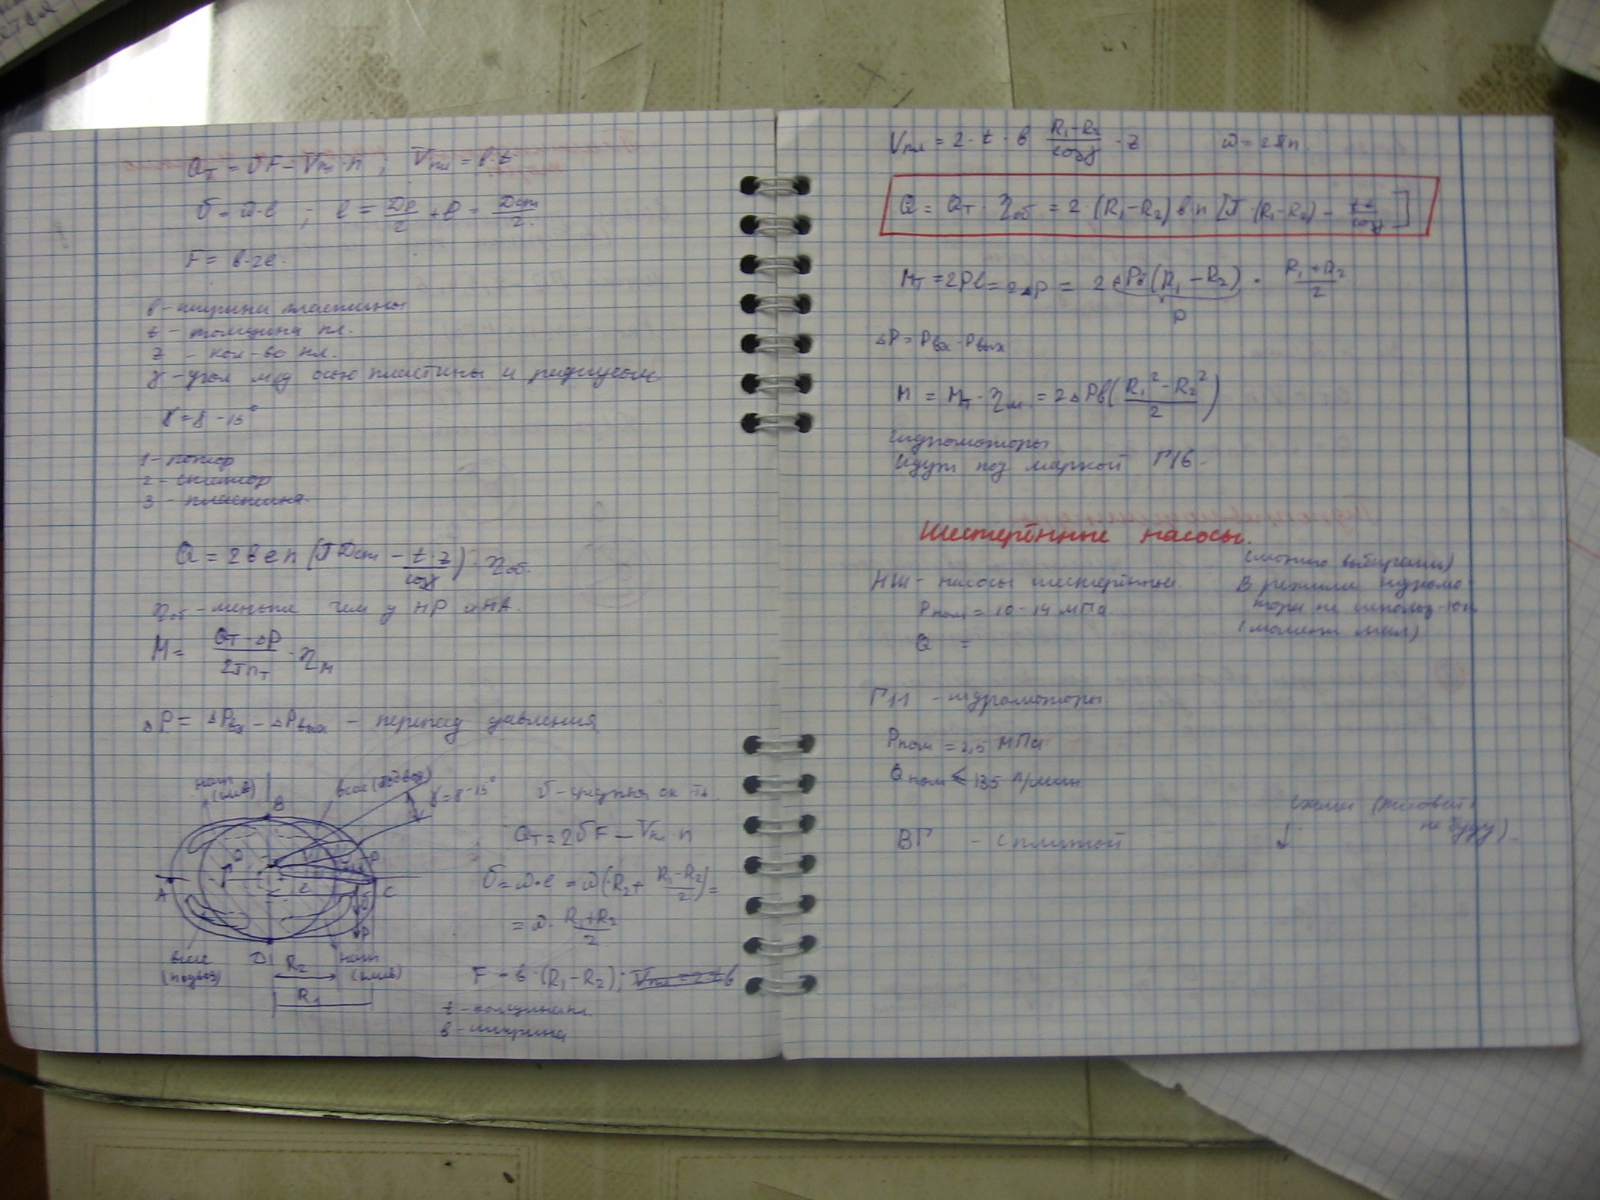 Qт = υF − Vпл · n ; Vпл = в·t
υ = ω·e ; e = Dр/2 + e = Dст/2
F = в·2e
в - ширина пластины
t - толщина пл.
z - кол-во пл.
γ - угол м/у осью пластины и радиусом
γ = 8 - 15°
1 - ротор
2 - статор
3 - пластина
Q = 2 в e n (π Dст − t·z/cosγ) · ηоб.
ηоб - меньше чем у НР и НА.
M = Qт · ΔP / 2πnт · ηм
ΔP = ΔPвх − ΔPвых - перепад давления
наг (слив)
B
всас (подвод)
γ = 8 - 15°
υ - средняя ск-ть
Qт = 2υF − Vпл · n
A
C
υ = ω·e = ω (R₂ + R₁−R₂/2) =
= ω · R₁+R₂/2
всас (подвод)
D
R₂
наг (слив)
R₁
F = в · (R₁ − R₂) ; Vпл = 2·t·в
t - толщина
в - ширина
Vпл = 2 · t · в R₁−R₂/cosγ · z ω = 2πn
Q = Qт · ηоб = 2 · (R₁−R₂) в n [π (R₁−R₂) − t z/cosγ]
Mт = 2Pe = 2ΔP = 2 ΔPв (R₁ − R₂) · R₁+R₂/2
P
ΔP = Pвх - Pвых
M = Mт · ηм = 2ΔPв (R₁² − R₂²/2)
Гидромоторы
Идут под маркой Г16 -
Шестерённые насосы.
НШ - насосы шестерённые
Pном = 10 - 14 МПа.
Q =
(можно выбирать)
В режиме гидромо-
тора не использ-ют
(момент мал)
Г11 - гидромоторы
Pном = 2,5 МПа
Qном ≤ 135 л/мин
ВГ - с плитой
схемы (рисовать
не буду).